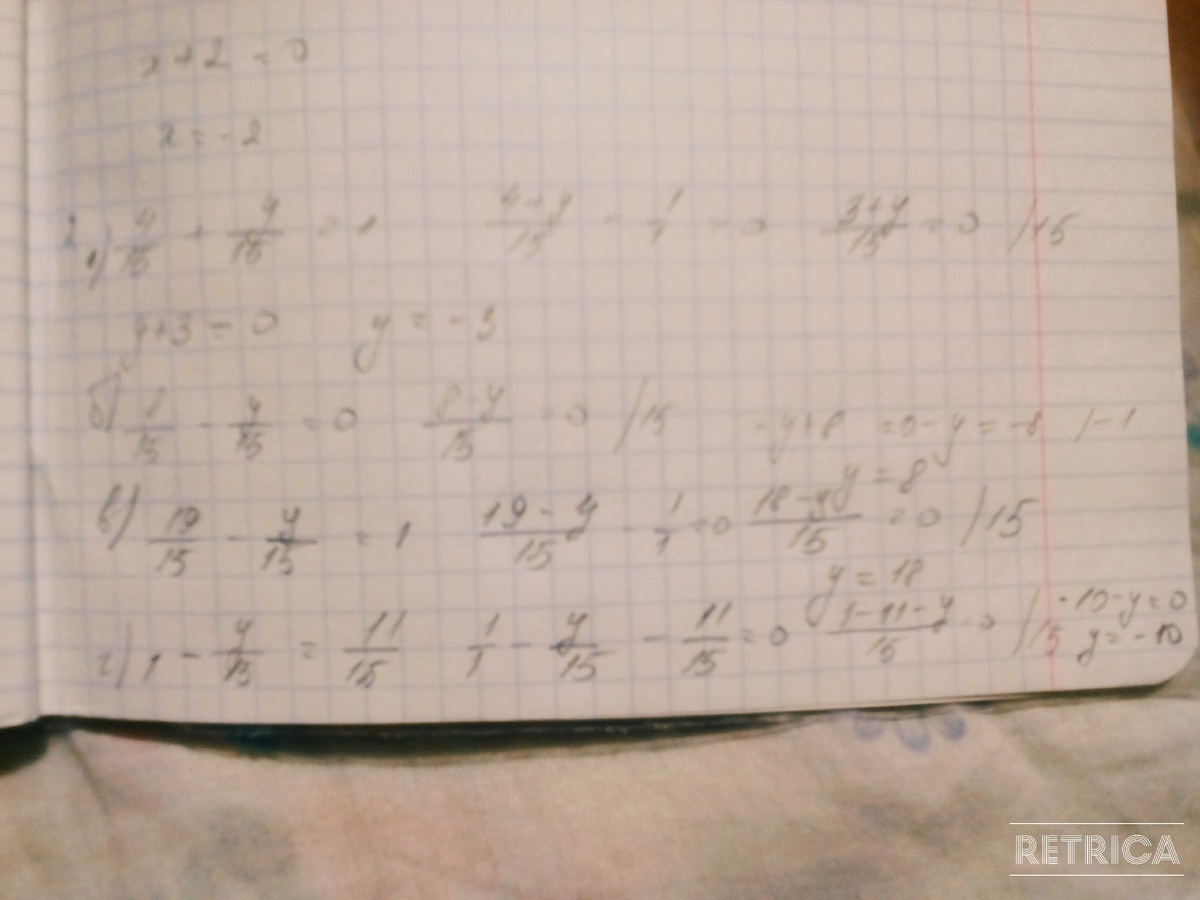 x + 2 = 0
x = - 2
2 а) 4/15 + y/15 = 1 (4+y)/15 - 1/1 = 0 (3+y)/15 = 0 /15
y+3 = 0 y = - 3
б) 8/15 - y/15 = 0 (8-y)/15 = 0 /15 -y+8 = 0 -y = -8 /-1
y = 8
в) 19/15 - y/15 = 1 (19-y)/15 - 1/1 = 0 (18-y)/15 = 0 /15
y = 18
г) 1 - y/15 = 11/15 1/1 - y/15 - 11/15 = 0 (1-11-y)/15 = 0 /15 -10-y=0
y = -10
RETRICA